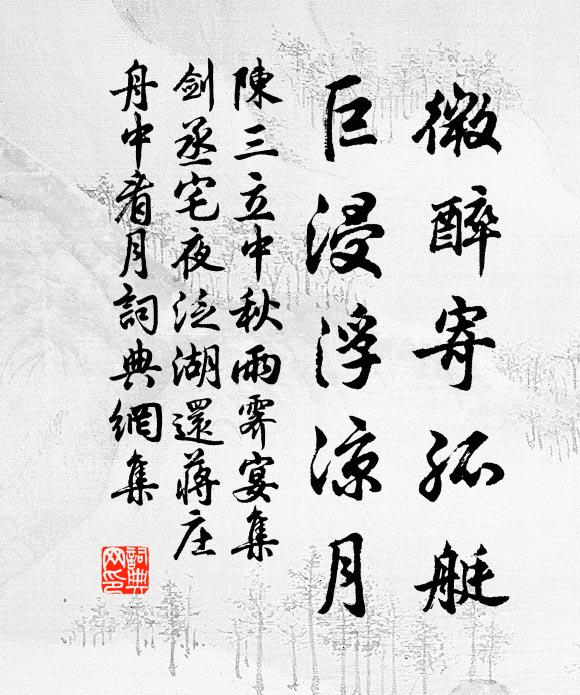 微醉寄孤艇
巨浸浮涼月
陳三立中秋雨霽宴集
劍丞宅夜泛湖還蔣庄
舟中看月詞典網集
詞典网印